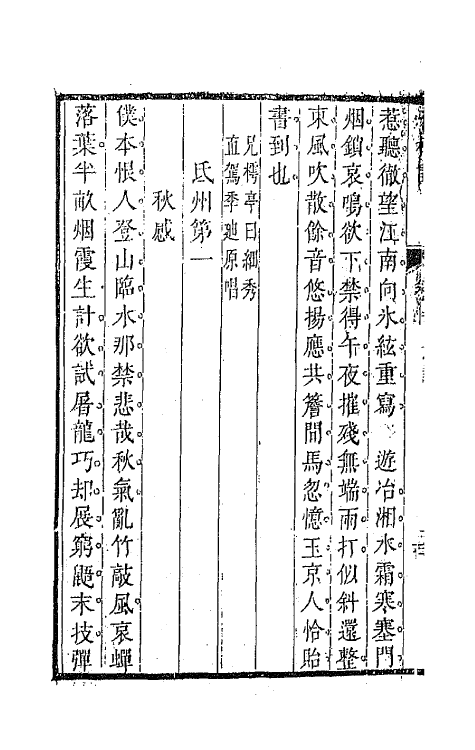 惹聽徹望江南向氷絃重寫　遊冶湘水霜寒塞門
烟鎖哀鳴欲下禁得午夜摧殘無端雨打似斜還整
東風吹散餘音悠揚應共簷間馬忽憶玉京人恰貽
書到也
兄樗亭曰細秀
直駕季迪原唱
氐州第一
秋感
僕本恨人登山臨水那禁悲哉秋氣亂竹敲風哀蟬
落葉半畝烟霞生計欲試屠龍巧却展窮鼯末技彈